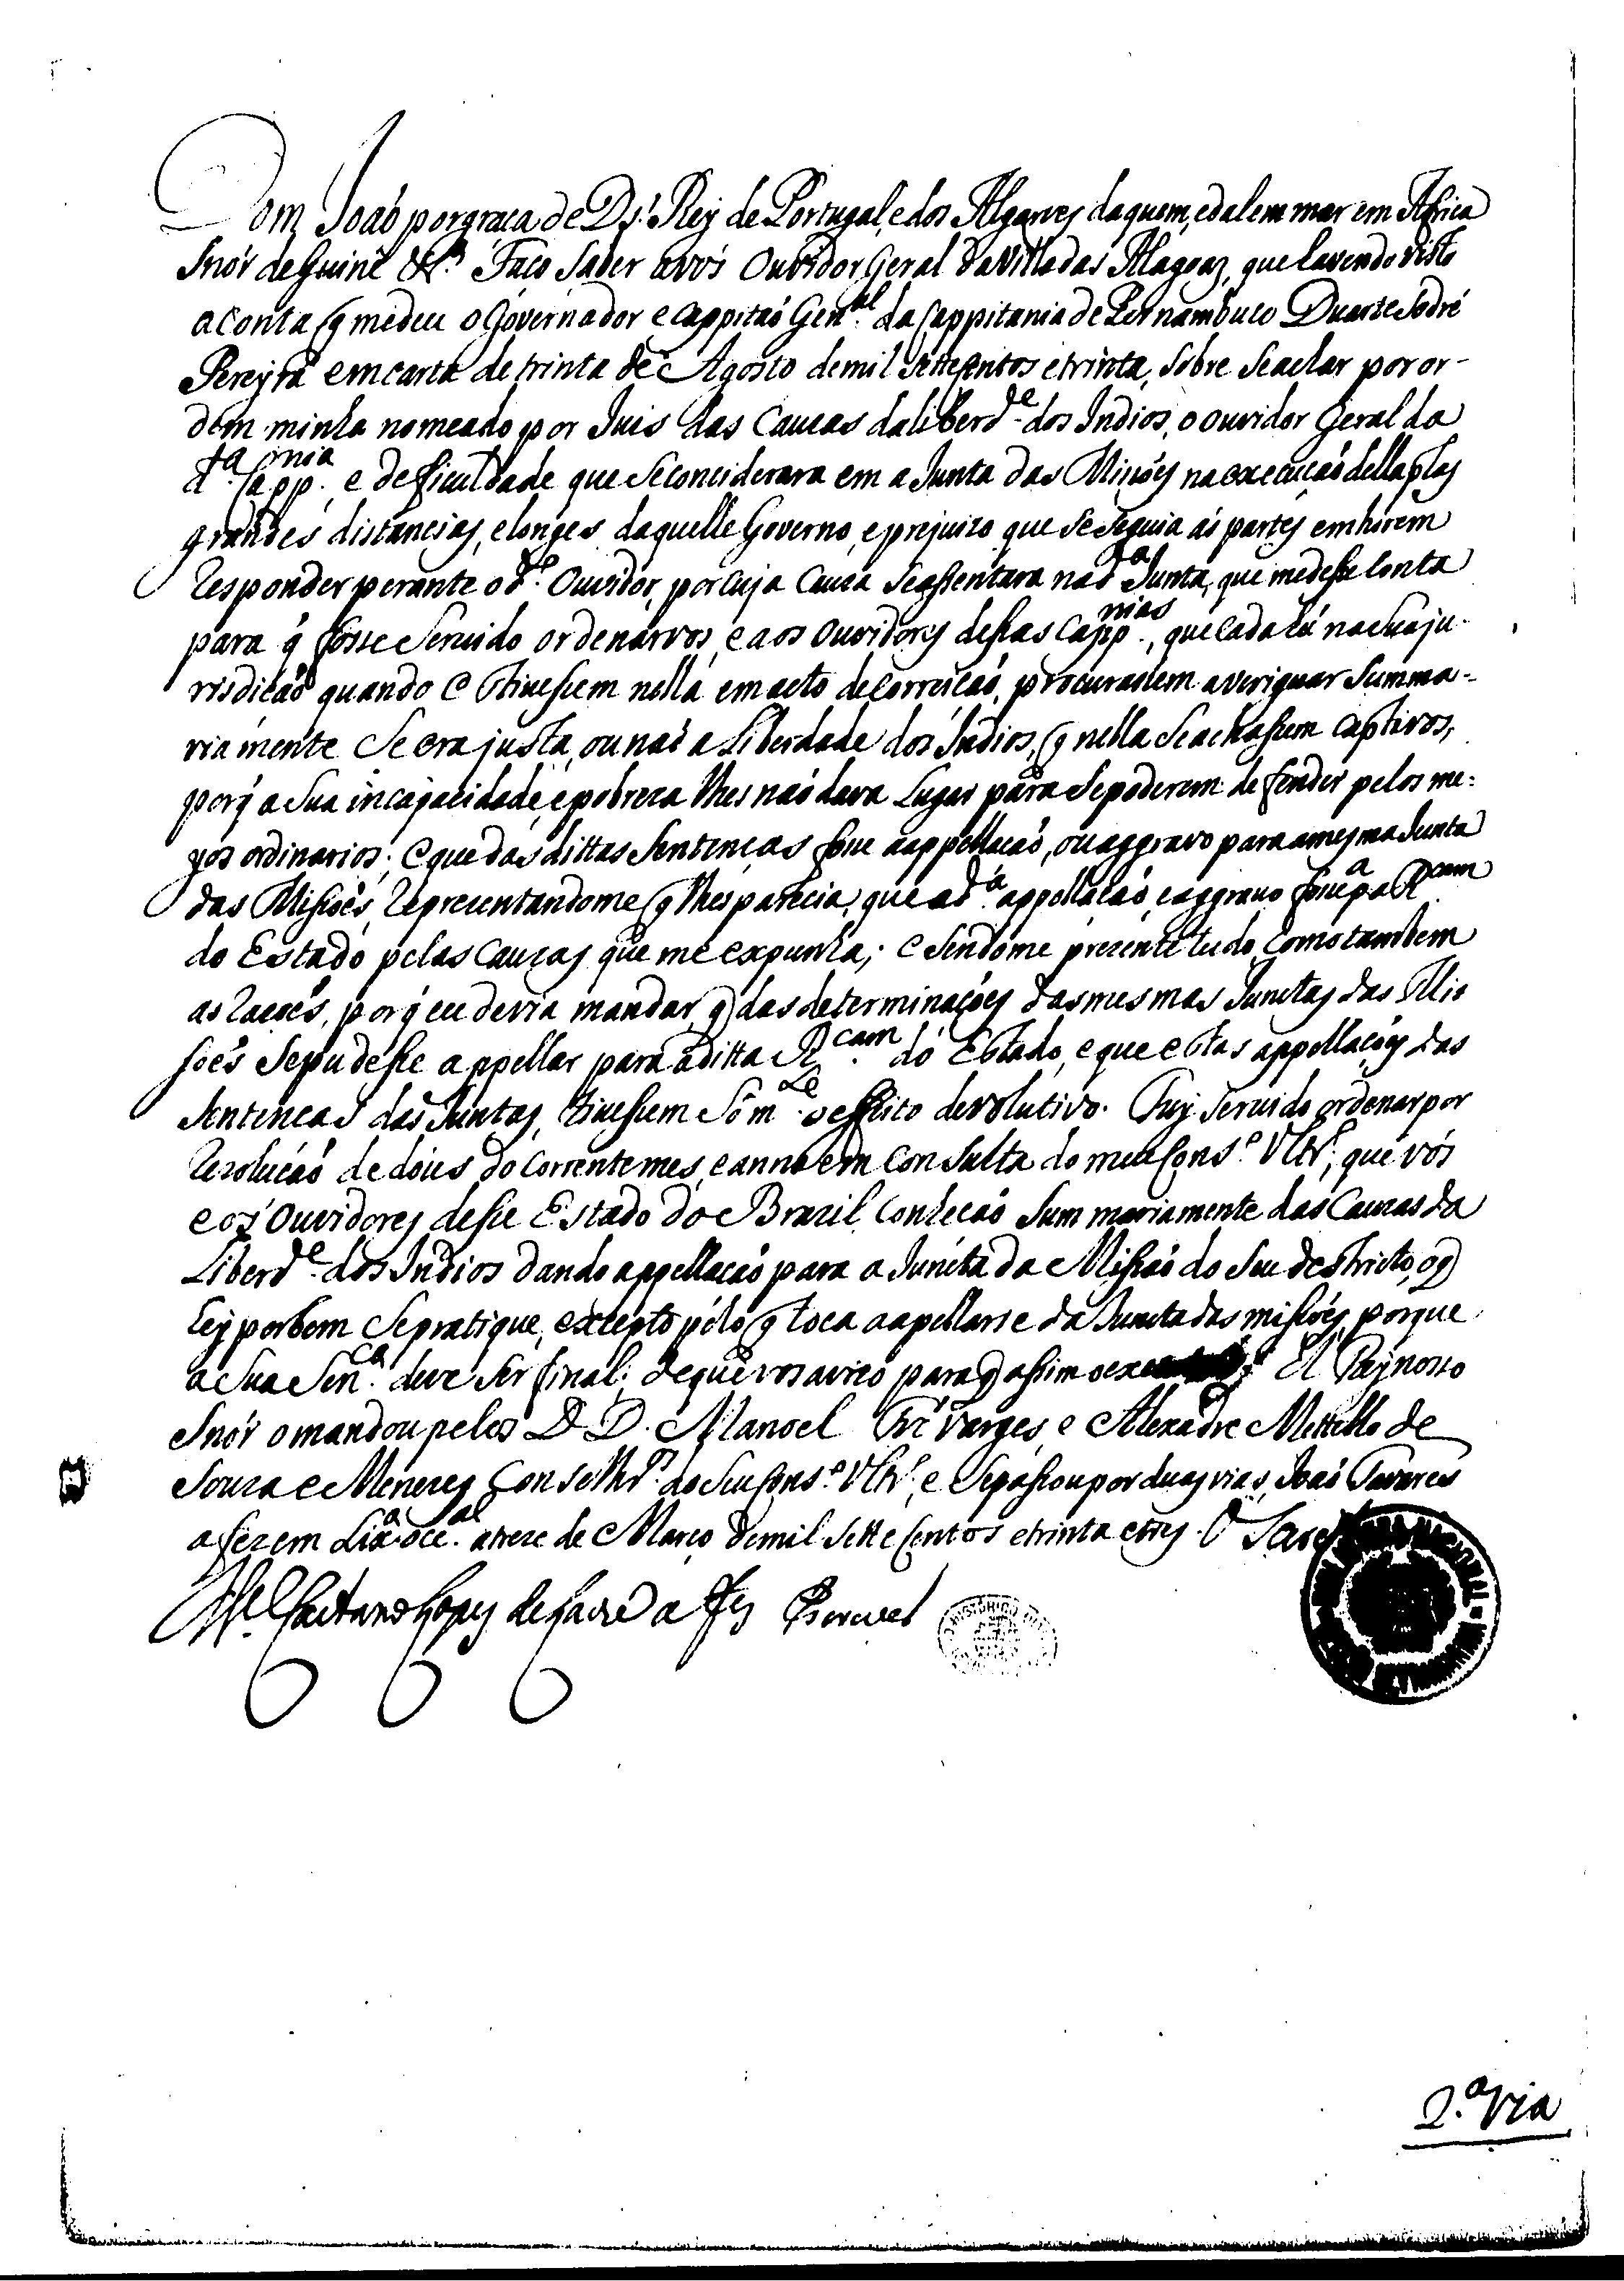 Dom Joaõ por graça de Ds.' Rey de Portugal, e dos Algarves daquem, e dalem mar em Africa
Snõr de Guiné &ª. Faço saber avós Ouvidor Geral da Villa das Alagoas, que havendo visto
a conta q̃ me deu o Governador e Cappitaõ Gen.al da Cappitania de Pernambuco Duarte Sodré
Pereyra em carta de trinta de Agosto de mil settecentos e trinta, sobre se achar por or-
dem minha nomeado por Juis das Cauzas da liberd.e dos Indios, o ouvidor Geral da
d.ta Capp.nia e deficuldade que se conciderara em a Junta das Missões na execuçaõ della plas
grandes distancias, e longes daquelle Governo, e prejuizo que se seguia ás partes em hirem
responder perante o d.o Ouvidor, por cuja cauza se assentara na d.a Junta, que me desse conta
para q̃ fosse servido ordenarvos, e aos ouvidores dessas capp.nias, que cada hú na sua ju-
risdicaõ quando estivessem nella em acto de correicaõ, procurassem averiguar summa-
riamente se era justa, ou naõ a Liberdade dos Indios, q̃ nella se achassem captivos,
porq̃ a sua incapacidade, e pobreza lhes naõ dava lugar para se poderem defender pelos me-
yos ordinarios; e que das dittas sentenças houvesse appellacaõ, ou aggravo para a mesma Junta
das Missoés, reprezentandome q̃ lhes parecia, que a d.a appellaçaõ, e aggravo fosse p.a a R.cam
do Estado pelas cauzas que me expunha; e sendome prezente tudo, como tambem
as razoés, porq̃ eu devia mandar, q̃ das determinações das mesmas Junctas das Mis
soés se pudesse appellar para a ditta R.cam do Estado, e que estas appellações das
sentencas das Juntas, tivessem sóm.te o effeito devolutivo. Fuy servido ordenar por
rezoluçaõ de dous do corrente mes, e anno em consulta do meu Cons.o Ultr.o, que vós
e os Ouvidores desse Estado do Brazil conheçaõ summariamente das Cauzas da
Liberd.e dos Indios dando appellacaõ para a Juncta da Missaõ do seu destricto, o q̃
hey por bem se pratique, excepto pelo q̃ toca a apellarse da Juncta das missões, porque
a sua sen.ca deve ser final; de que vos avizo para q̃ assim o El Rey nosso
Snõr o mandou pelos D.D. Manoel Frź Varges, e Alexãdre Metello de
Souza e Menezes Conselhr.os do seu Cons.o Ultr.o, e se passou por duas vias, Joaõ Tavares
a fez em Lix.a occ.al a treze de Março de mil sette centos e trinta e tres. O Secret
M.el Caetano Lopes de Lavre a fez escrever
2.ª via